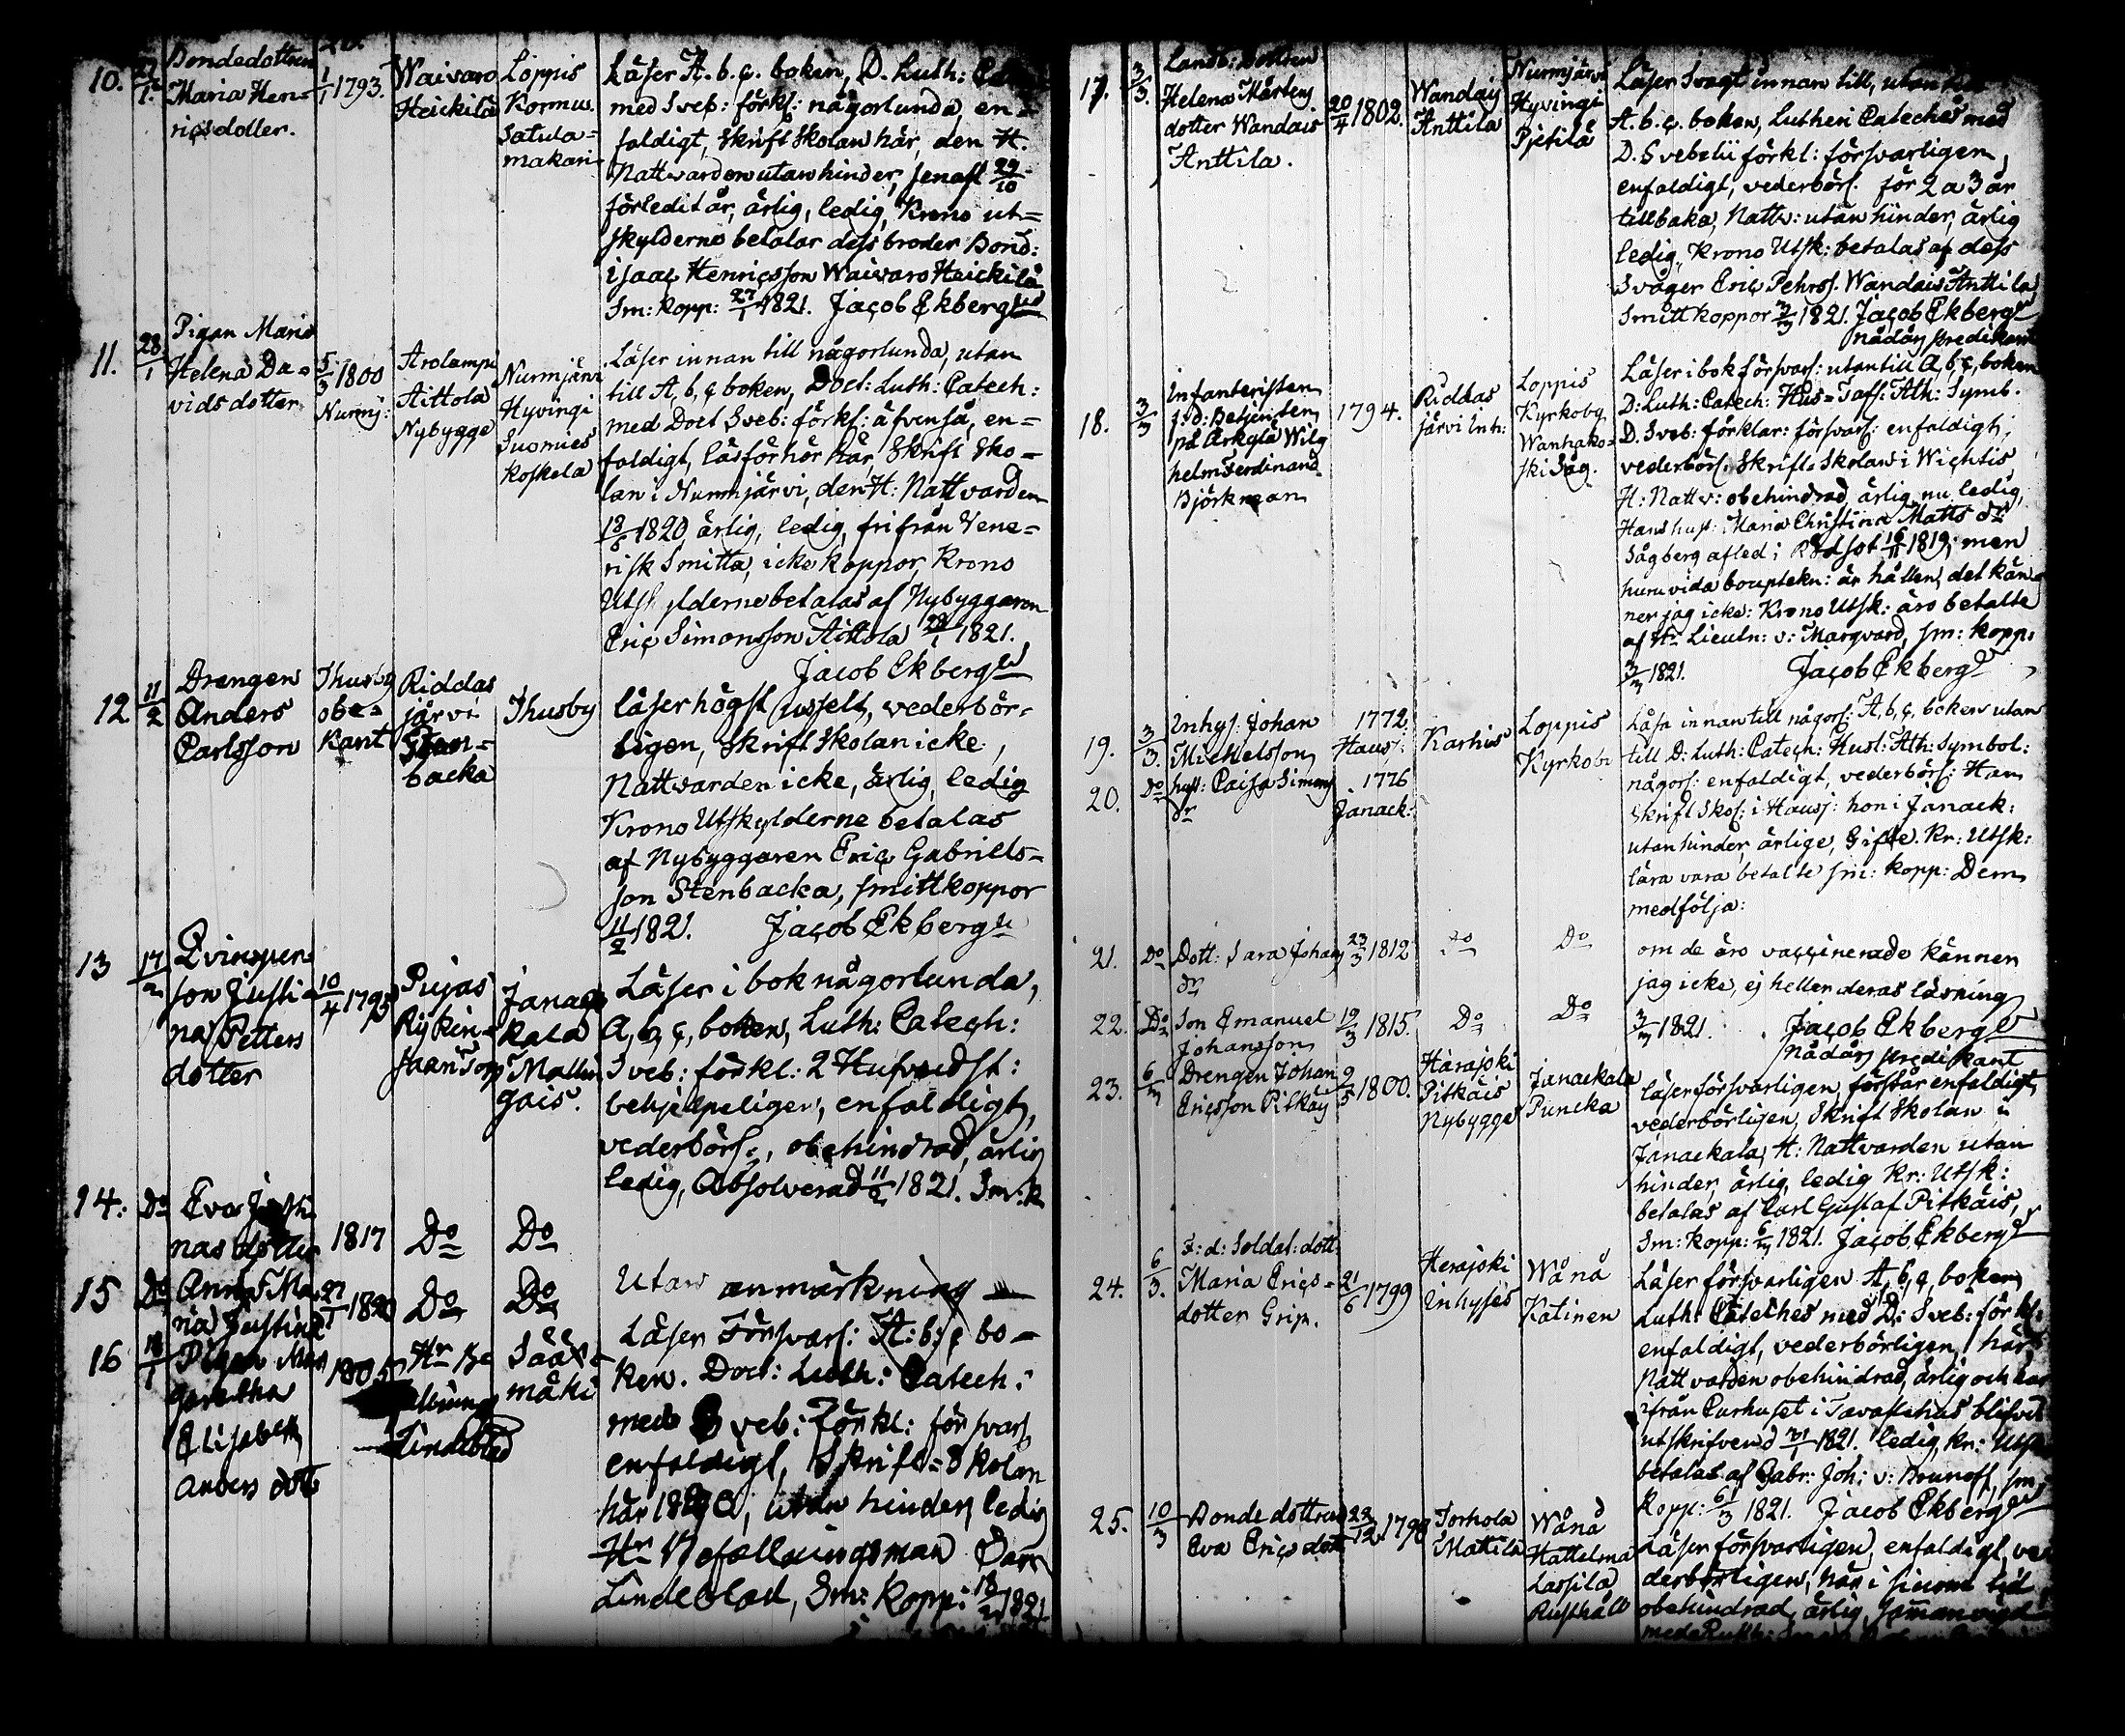 10. 27/1. Bondedottren
Maria Hen=
ricsdotter.
1/1 1793.
Waivaro
Heickilä
Loppis
Kormu.
Satula=
makari
Läser A. b. c. boken, D. Luth:
med Sveb: förkl: någorlunda, en=
faldigt, Skrift Skolan här, den H.
Nattvarden utan hinder, senast 29/10
förledit år, ärlig, ledig, Krono ut=
skylderne betalar dess broder Bond:
isaac Henricsson Waivaro Heickilä
Sm: kopp: 27/1 1821. Jacob Ekberg
11. 28/1 Pigan Maria
Helena Da=
vidsdotter
5/3 1800
Nurmj:
Arolampi
Aittola
Nybygge
Nurmjärvi
Hyvingi
Suomies
Koskela
Läser innan till någorlunda, utan
till A, b, c boken, Doct: Luth: Catech:
med Doct Sveb: förkl: äfvenså, en=
faldigt, läsförhör här, Skrift Sko=
lan i Nurmjärvi, den H: Nattvarden
18/6 1820, ärlig, ledig, fri från Vene=
risk Smitta, icke koppor, Krono
Utskylderne betalas af Nybyggaren
Eric Simonsson Aittola 28/1 1821.
Jacob Ekberg
12 11/2 Drengen
Anders
Carlsson
Thusby
obe=
kant
Riddas
järvi
Sten=
backa
Thusby
läser högst usselt, vederbör=
ligen, Skrift Skolan icke,
Nattvarden icke, ärlig, ledig
Krono Utskylderne betalas
af Nybyggaren Eric Gabriels=
son Stenbacka, smittkoppor
11/2 1821. Jacob Ekberg
13 17/2 Qvinsper
son Justi=
na Petters
dotter
10/4 1795
Pujas
Rykin=
saari Torp
Janack
kala
Mallin
gais.
Läser i bok någorlunda,
A, b, c, boken, Luth: Catech:
Sveb: förkl: 2 Hufvudst:
behjelpeligen, enfaldigt,
vederbörl:, obehindrad, ärlig
ledig, Absolverad 11/2 1821. Sm: k
14: Do Eva Justi
nas dotter
1817
Do
Do
15 Do Anna Ma
ria Justina
27/1 1820
Do
Do
Utan anmärkning
16 18/1 Pigan Mar
garetha
Elisabeth
Anders dotter
1805
Hr Be
Lindeblad
Sääx
mäki
Läser Försvarl: A: b: c bo=
ken. Doct: Luth: Catech:
med Sveb: Förkl: försvarl
enfaldigt, Skrift=Skolan
här 1820, utan hinder, ledig
Hr Befallningsman
Lindeblad, Sm: kopp: 18/2 1821
17. 3/3. Landb: Dottren
Helena Mårtens
dotter Wandais
Anttila.
20/4 1802.
Wandais
Anttila
Nurmjärvi
Hyvingi
Pjetilä
Läser Svagt innan till, utan till
A. b. c. boken, Lutheri Cateches med
D. Svebelii förkl: försvarligen,
enfaldigt, vederbörl. för 2 a 3 år
tillbaka, Nattv: utan hinder, ärlig
ledig, Krono Utsk: betalas af dess
Svåger Eric Pehrss. Wandais Anttila
Smittkoppor 3/3 1821. Jacob Ekberg
nådårs predikant
18. 3/3 Infanteristen
f: d: Betjenten
på Arkylä Wilg
helm Ferdinand
Björkman
1794.
Riddas
järvi Inh:
Loppis
Kyrkoby
Wanhako=
ski Såg.
Läser i bok försvarl: utantill A, b, c, boken
D: Luth: Catech: Hus=Tafl: Ath: Symb.
D. Sveb: förklar: försvarl: enfaldigt,
vederbörl: Skrift Skolan i Wichtis
H: Nattv: obehindrad ärlig nu ledig,
Hans hust: Maria Christina Matts dr
Sågberg afled i Rödsot 10/11 1819; men
huruvida bouptekn: är hållen, det kän=
ner jag icke: Krono Utsk: äro betalte
af Hr Lieutn: v: Marqvard, sm: kopp:
3/3 1821. Jacob Ekberg
19. 3/3. Inhys. Johan
Michelsson
1772.
Hausj:
Karhis
Loppis
Kyrkobi
20. Do hust: Caisa Simons
dr
1776
Janack:
Läsa innantill någorl: A, b, c, boken utan
till D: Luth: Catech: Hust: Ath: Symbol:
någorl: enfaldigt, vederbörl: Han
Skrift Skol: i Hausj: hon i Janack:
utan hinder, ärlige, Gifte. Kr: Utsk:
lära vara betalte sm: kopp: Dem
medfölja:
21. Do Dott: Sara Johans
dr
23/3 1812
Do
Do
om de äro vaccinerade känner
jag icke, ej heller deras läsning
22. Do Son Emanuel
Johansson
19/3 1815.
Do
Do
3/3 1821. Jacob Ekberg
nådårs predikant
23. 6/3 Drengen Johan
Ericsson Pitkäs
9/5 1800.
Härajoki
Pitkäis
Nybygge
Janackala
Puncka
läser försvarligen, förstår enfaldigt,
vederbörligen, Skrift Skolan i
Janackala, H: Nattvarden utan
hinder, ärlig, ledig Kr: Utsk:
betalas af Carl Gustaf Pitkäis,
Sm: kopp: 6/3 1821. Jacob Ekberg
24. 6/3. F: d: Soldat: dott:
Maria Erics=
dotter Grip.
21/6 1799
Herajoki
inhyses
Wånå
Katinen
Läser försvarligen A, b, c, boken
Luth: Cateches med D: Sveb: förkl:
enfaldigt, vederbörligen, här,
Nattvarden obehindrad, ärlig och har
ifrån Curhuset i Tavastehus blifvit
utskrifven 1821. ledig, kr: Utsk
betalas af Gabr: Joh: v: Brunoff, sm:
Kopp: 6/3 1821. Jacob Ekberg
25. 10/3 Bonde dottren
Eva Erics dott
22/12 1798
Torhola
Mattila
Wånå
Hattelma
Lassila
Rusthåll
Läser försvarligen, enfaldigt, ve
derbörligen, här i sinom tid
obehindrad, ärlig, samman vigd